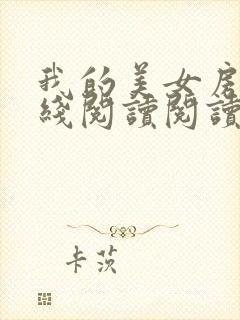 我的美女房
綫閱讀閱讀
卡茨